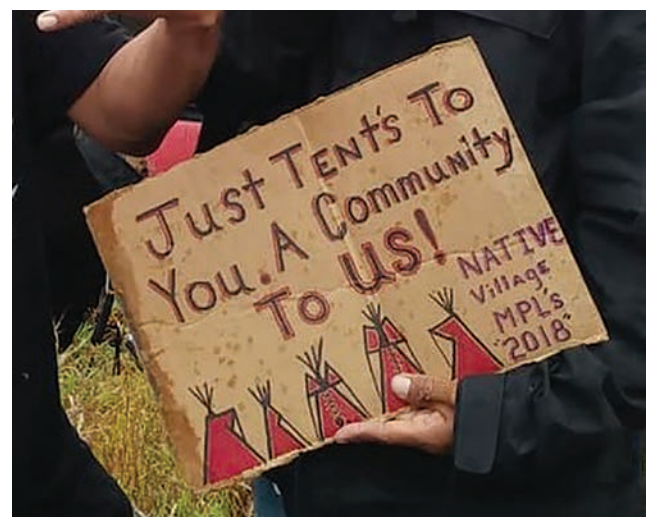 Just TENt's To
You. A Community
To US!
NATIVE
Village
MPL's
"2018"